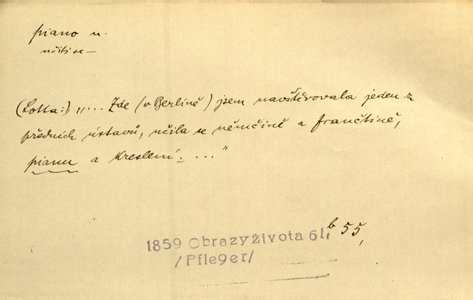 piano n.
učiti se –
(Lotta:) „... Zde (v Berlíně) jsem navštěvovala jeden z
předních ústavů, učila se němčině a frančtině,
pianu a kreslení. ..."
1859 Obrazy života 61, b 55,
/Pfleger/